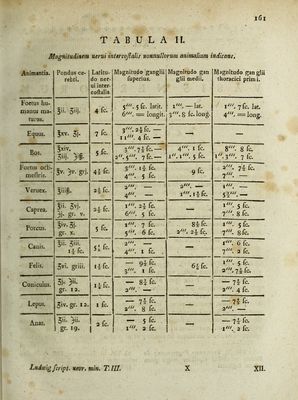 161
TABULA II.
Magnitudinem nerui intercostalis nonnullorum animalium indicans.
Animantia. Pondus cerebri. Latitudo nerui intercostalis Magnitudo ganglii superius. Magnitudo ganglii medii. Magnitudo ganglii thoracici primi.
Foetus humanus maturus. ℥ii. ʒiij. 4 sc. 5‴. 5 sc. latit. 6‴. — longit. 1‴. — lat. 3‴. 8 sc. long. 1‴. 7 sc. 4‴. — long.
Equus. ℥xv. ʒj. 7 sc. 3‴. 2½ sc. — 11‴. 4 sc. — —
Bos. 5 sc. 3‴. 7½ sc. — 2″. 5‴. 7 sc. — 4‴. 1 sc. 1″. 1‴. 5 sc. 8‴. 8 sc. 1″. 3‴. 7 sc.
Foetus octimestris. ℥v. ʒv. grj. 4½ sc. 3‴. 1½ sc. 4‴. 5 sc. 9 sc. 2‴. 7½ sc. 7‴. —
Veruex. 2½ sc. 2‴. — 4‴. — 2‴. — 1‴. 1½ sc. 1‴. — 3‴. —
Caprea. ℥ii. ʒvj. ℈j. gr. v. 2½ sc. 1‴. 2½ sc. 6‴. 5 sc. — 1‴. 5 sc. 7‴. 8 sc.
Porcus. ℥iv. ʒj. gr. x. 5 sc. 1‴. 7 sc. 5‴. 6 sc. 8½ sc. 2‴. 2½ sc. 1‴. 5 sc. 7‴. 8 sc.
Canis. ℥ii. ʒiii. 5¼ sc. 2‴. — 4‴. 1 sc. — 1‴. 6 sc. 7‴. 2 sc.
Felis. ʒvi. griii. 1½ sc. — 9½ sc. 3‴. 1 sc. 6½ sc. 1‴. 5 sc. 2‴. 7½ sc.
Cuniculus. ʒj. ℈ii. gr. 12. 1½ sc. — 8½ sc. 2‴. — — — 7½ sc. 2‴. 4 sc.
Lepus. ʒiv. gr. 12. 1 sc. — 7½ sc. 2‴. 8 sc. — — 7½ sc. 2‴. —
Anas. ʒii. ℈ii. gr. 19. 2 sc. — 5 sc. 1‴. 2 sc. — — 7½ sc. 1‴. 2 sc.
Ludwig script. neur. min. T. III. X XII.